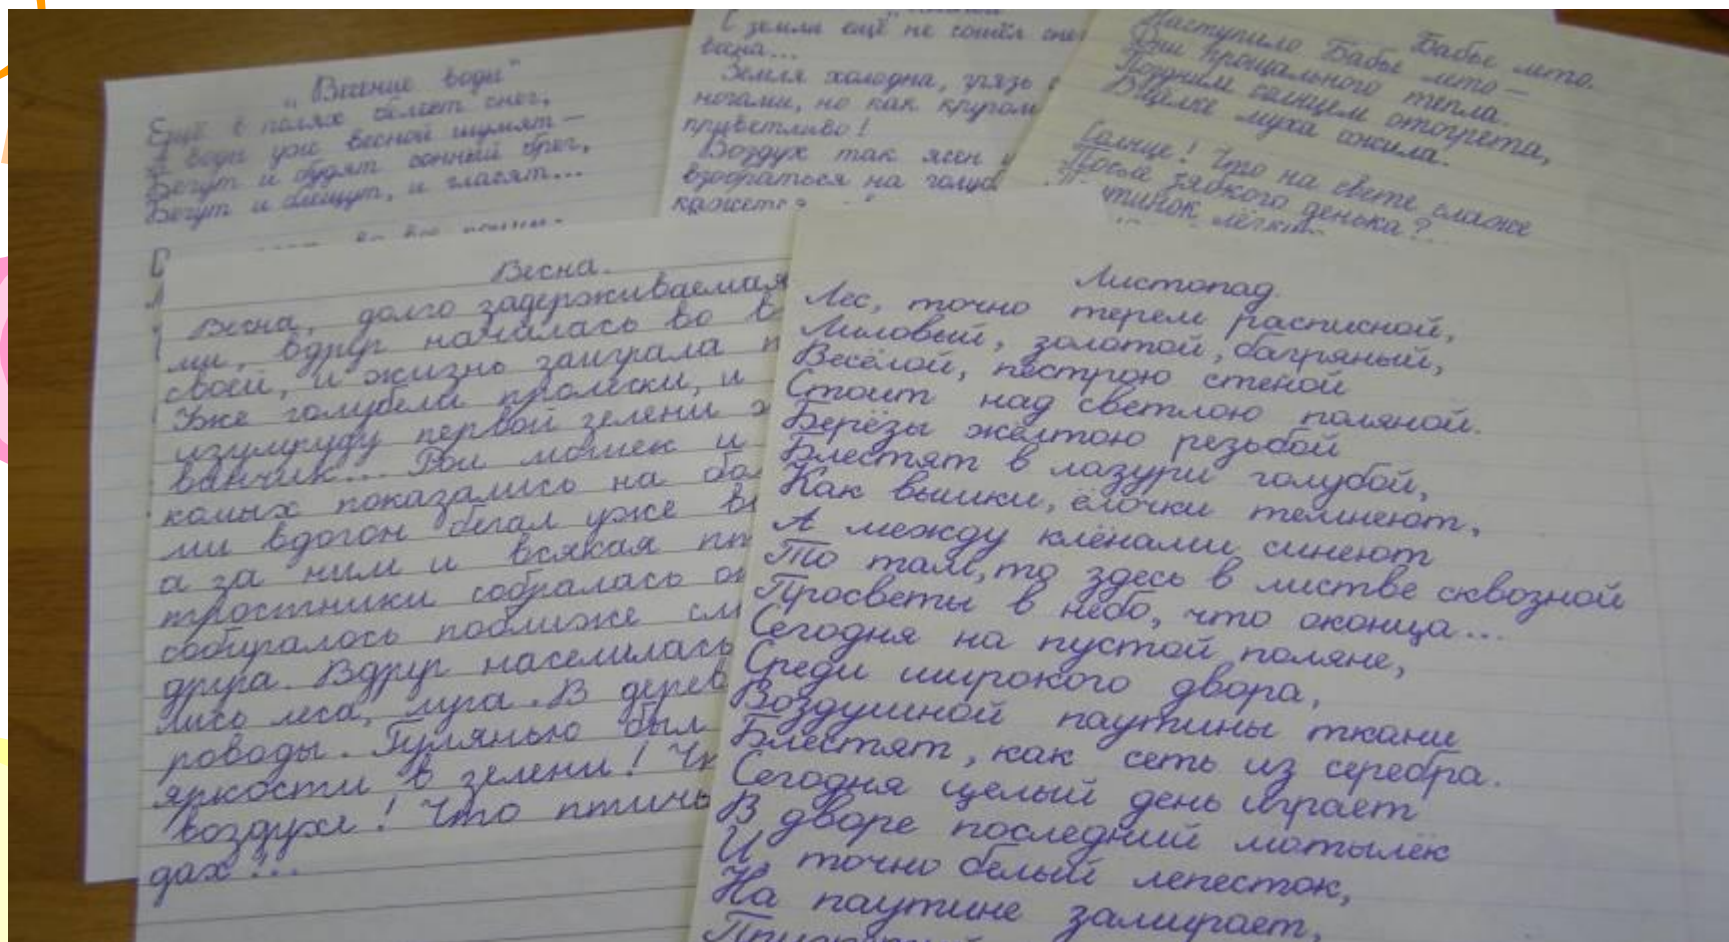 „Весение воды"
Ещё в полях белеет снег,
А воды уж весной шумят —
Бегут и будят сонный брег,
Бегут и блещут, и гласят...
С земли ещё не сошёл сне
весна...
Земля холодна, грязь
ногами, но как кругом
приветливо!
Воздух так ясен и
взобраться на голуб
кажется
Бабье лето.
Наступило Бабье лето —
Дни прощального тепла.
Поздним солнцем отогрета,
В щёлке муха ожила.
Солнце! Что на свете слаже
После зябкого денька?..
тинок лёгких
Весна.
Весна, долго задерживаемая
ми, вдруг началась во в
своей, и жизнь заиграла п
Уже голубели пролески, и
изумруду первой зелени ж
ванчик... Рои мошек и
комых показались на бол
ми вдогон бегал уже в
а за ним и всякая пт
тростники собралась ог
собиралось поближе см
друга. Вдруг населилась
лись леса, луга. В дерев
роводы. Гулянью был
яркости в зелени! Чт
воздухе! Что птичь
дах!...
Листопад.
Лес, точно терем расписной,
Лиловый, золотой, багряный,
Весёлой, пёстрою стеной
Стоит над светлою поляной.
Берёзы жёлтою резьбой
Блестят в лазури голубой,
Как вышки, ёлочки темнеют,
А между клёнами синеют
То там, то здесь в листве сквозной
Просветы в небо, что оконца...
Сегодня на пустой поляне,
Среди широкого двора,
Воздушной паутины ткани
Блестят, как сеть из серебра.
Сегодня целый день играет
В дворе последний мотылёк
И, точно белый лепесток,
На паутине замирает,